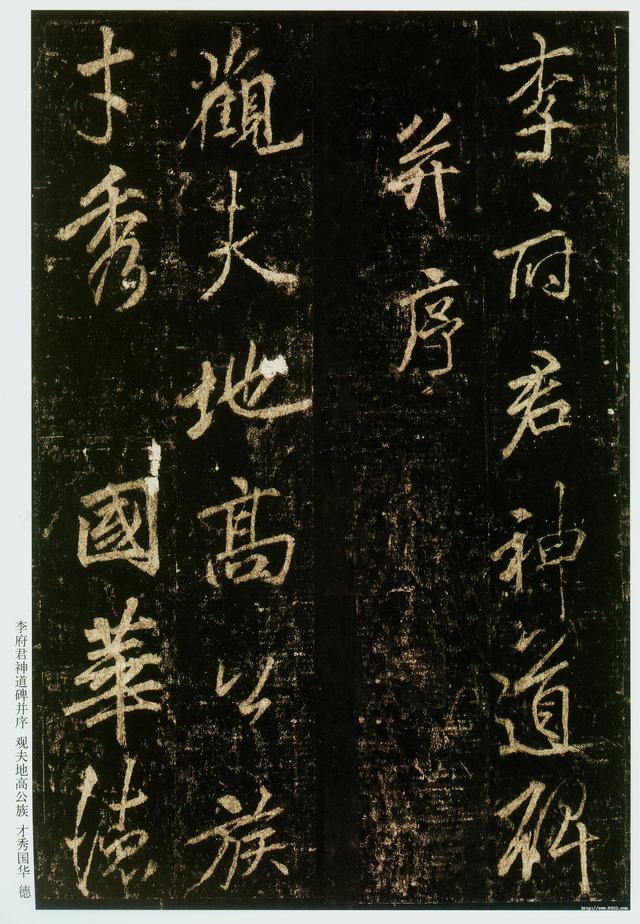 李府君神道碑
并序
觀夫地高公族
才秀國華德
李府君神道碑并序 观夫地高公族 才秀国华 德